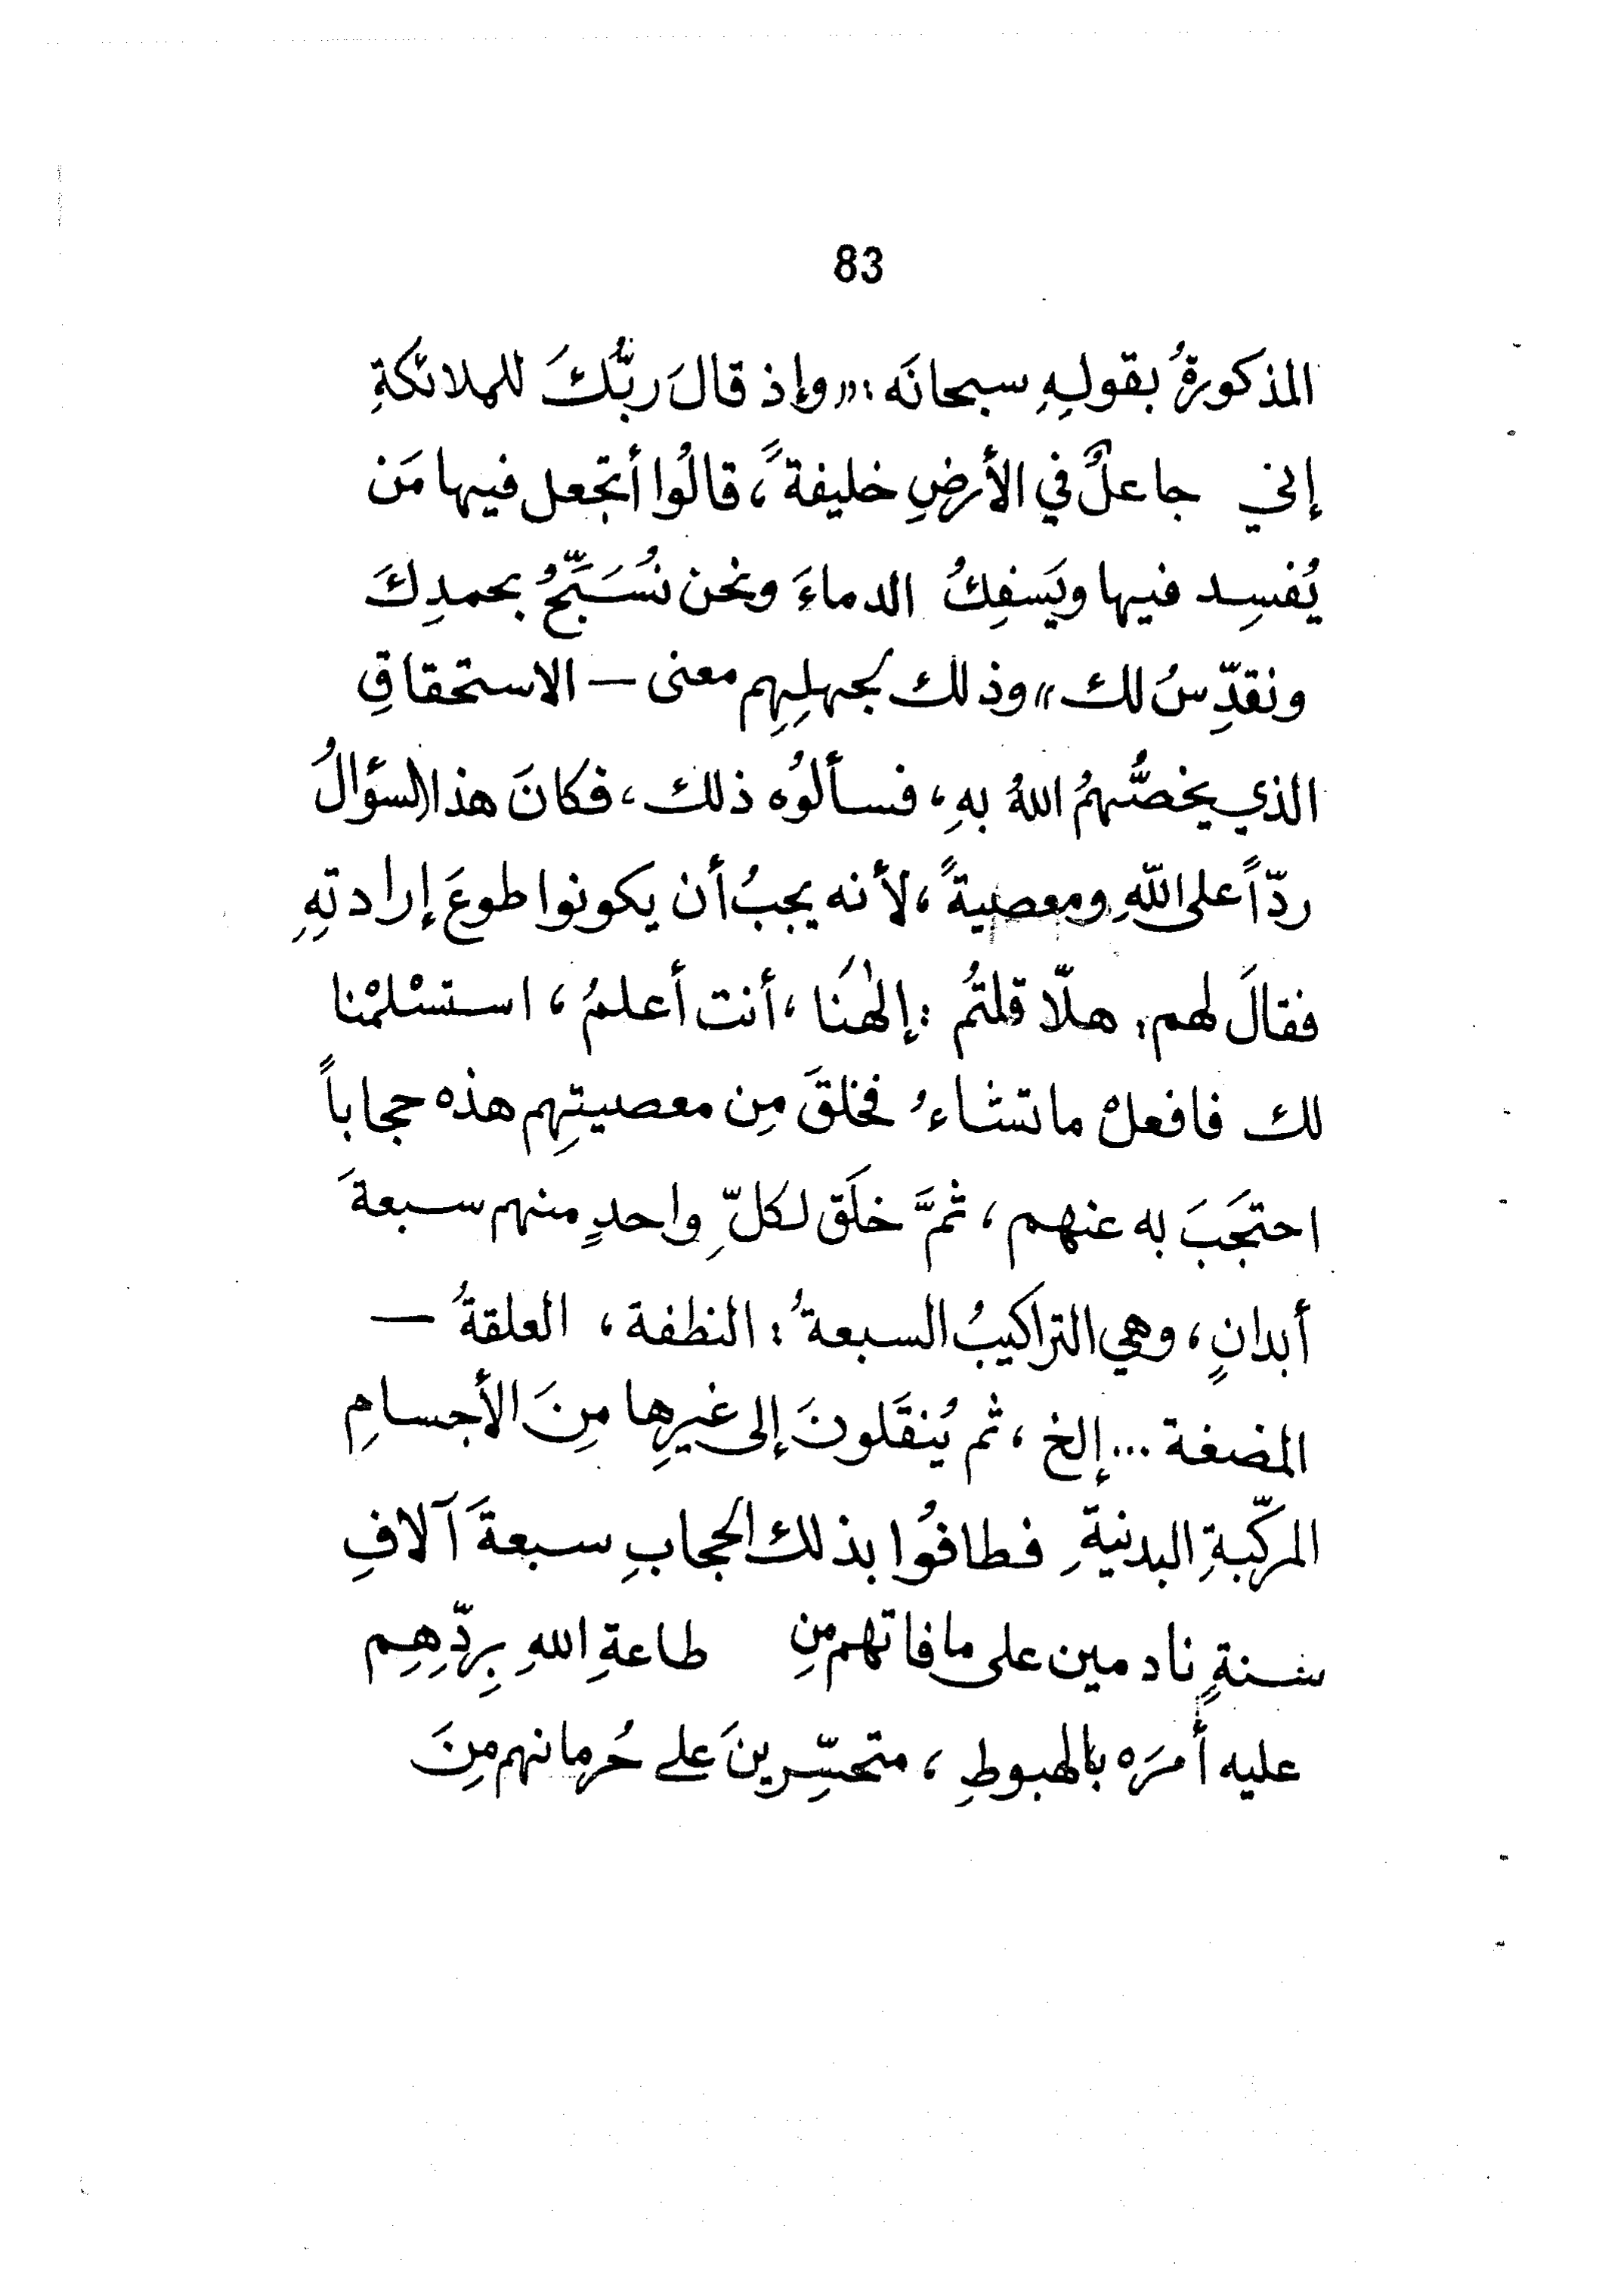 83
المذكورةُ بقولِهِ سبحانَه :«وإذ قالَ ربُّكَ للملائكةِ
إني جاعلٌ في الأرضِ خليفةً ، قالُوا أتجعل فيها مَن
يُفسِد فيها ويَسفِكُ الدماءَ ونحن نُسَبِّحُ بحمدِكَ
ونقدِّسُ لك» وذلك لجهلِهِم معنى – الاستحقاقِ
الذي يخصُّهمُ اللهُ بهِ ، فسألُوه ذلك ، فكانَ هذا السؤالُ
ردّاً على اللّهِ ومعصيةً ، لأنه يجبُ أن يكونوا طوعَ إرادتِهِ
فقالَ لهم: هلّا قلتُم : إلٰهَنا ، أنت أعلمُ ، استسْلمْنا
لك فافعلْ ما تشاءُ فخلقَ مِن معصيتِهم هذه حجاباً
احتجَبَ به عنهم ، ثمَّ خلَق لكلِّ واحدٍ منهم سبعةَ
أبدانٍ ، وهي التراكيبُ السبعةُ : النطفة ، العلقةُ –
المضغة ... إلخ ، ثم يُنقَلونَ إلى غيرِها مِنَ الأجسامِ
المركّبةِ البدنيةِ فطافُوا بذلك الحجابِ سبعةَ آلافِ
سنةٍ نادمين على ما فاتهم مِن طاعةِ اللهِ بِردِّهِم
عليه أمرَه بالهبوطِ ، متحسِّرينَ على حُرمانهم مِنَ